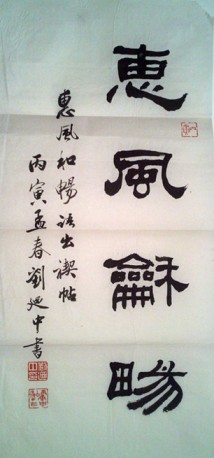 惠風龢暢
惠風和暢語出禊帖
丙寅孟春劉延中書